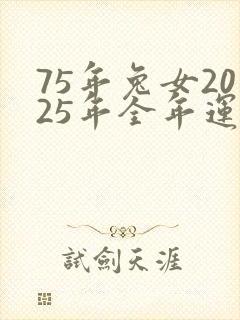 75年兔女20
25年全年運
試劍天涯